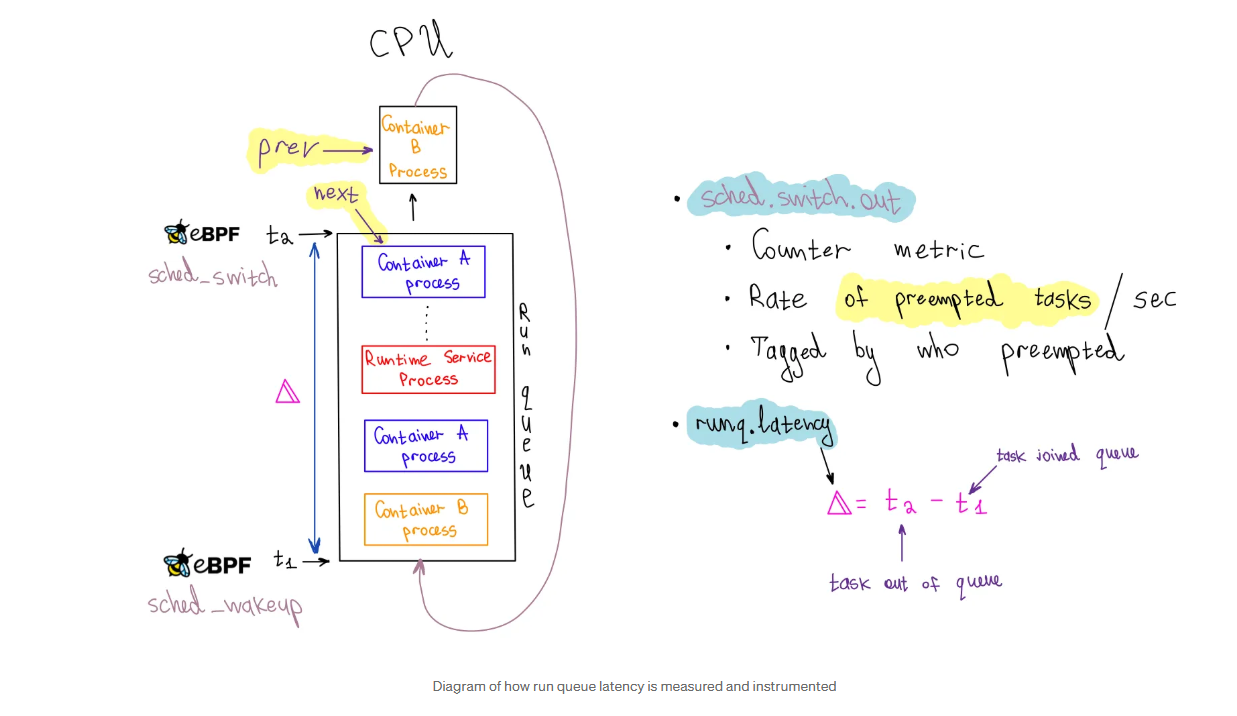 CPU
Container
B
Process
prev
next
eBPF
t2
sched_switch
Container A
process
Runtime Service
Process
Container A
process
Container B
process
Run queue
Δ
eBPF
t1
sched_wakeup
• sched.switch.out
• Counter metric
• Rate of preempted tasks / sec
• Tagged by who preempted
• runq.latency
task joined queue
Δ = t2 - t1
task out of queue
Diagram of how run queue latency is measured and instrumented